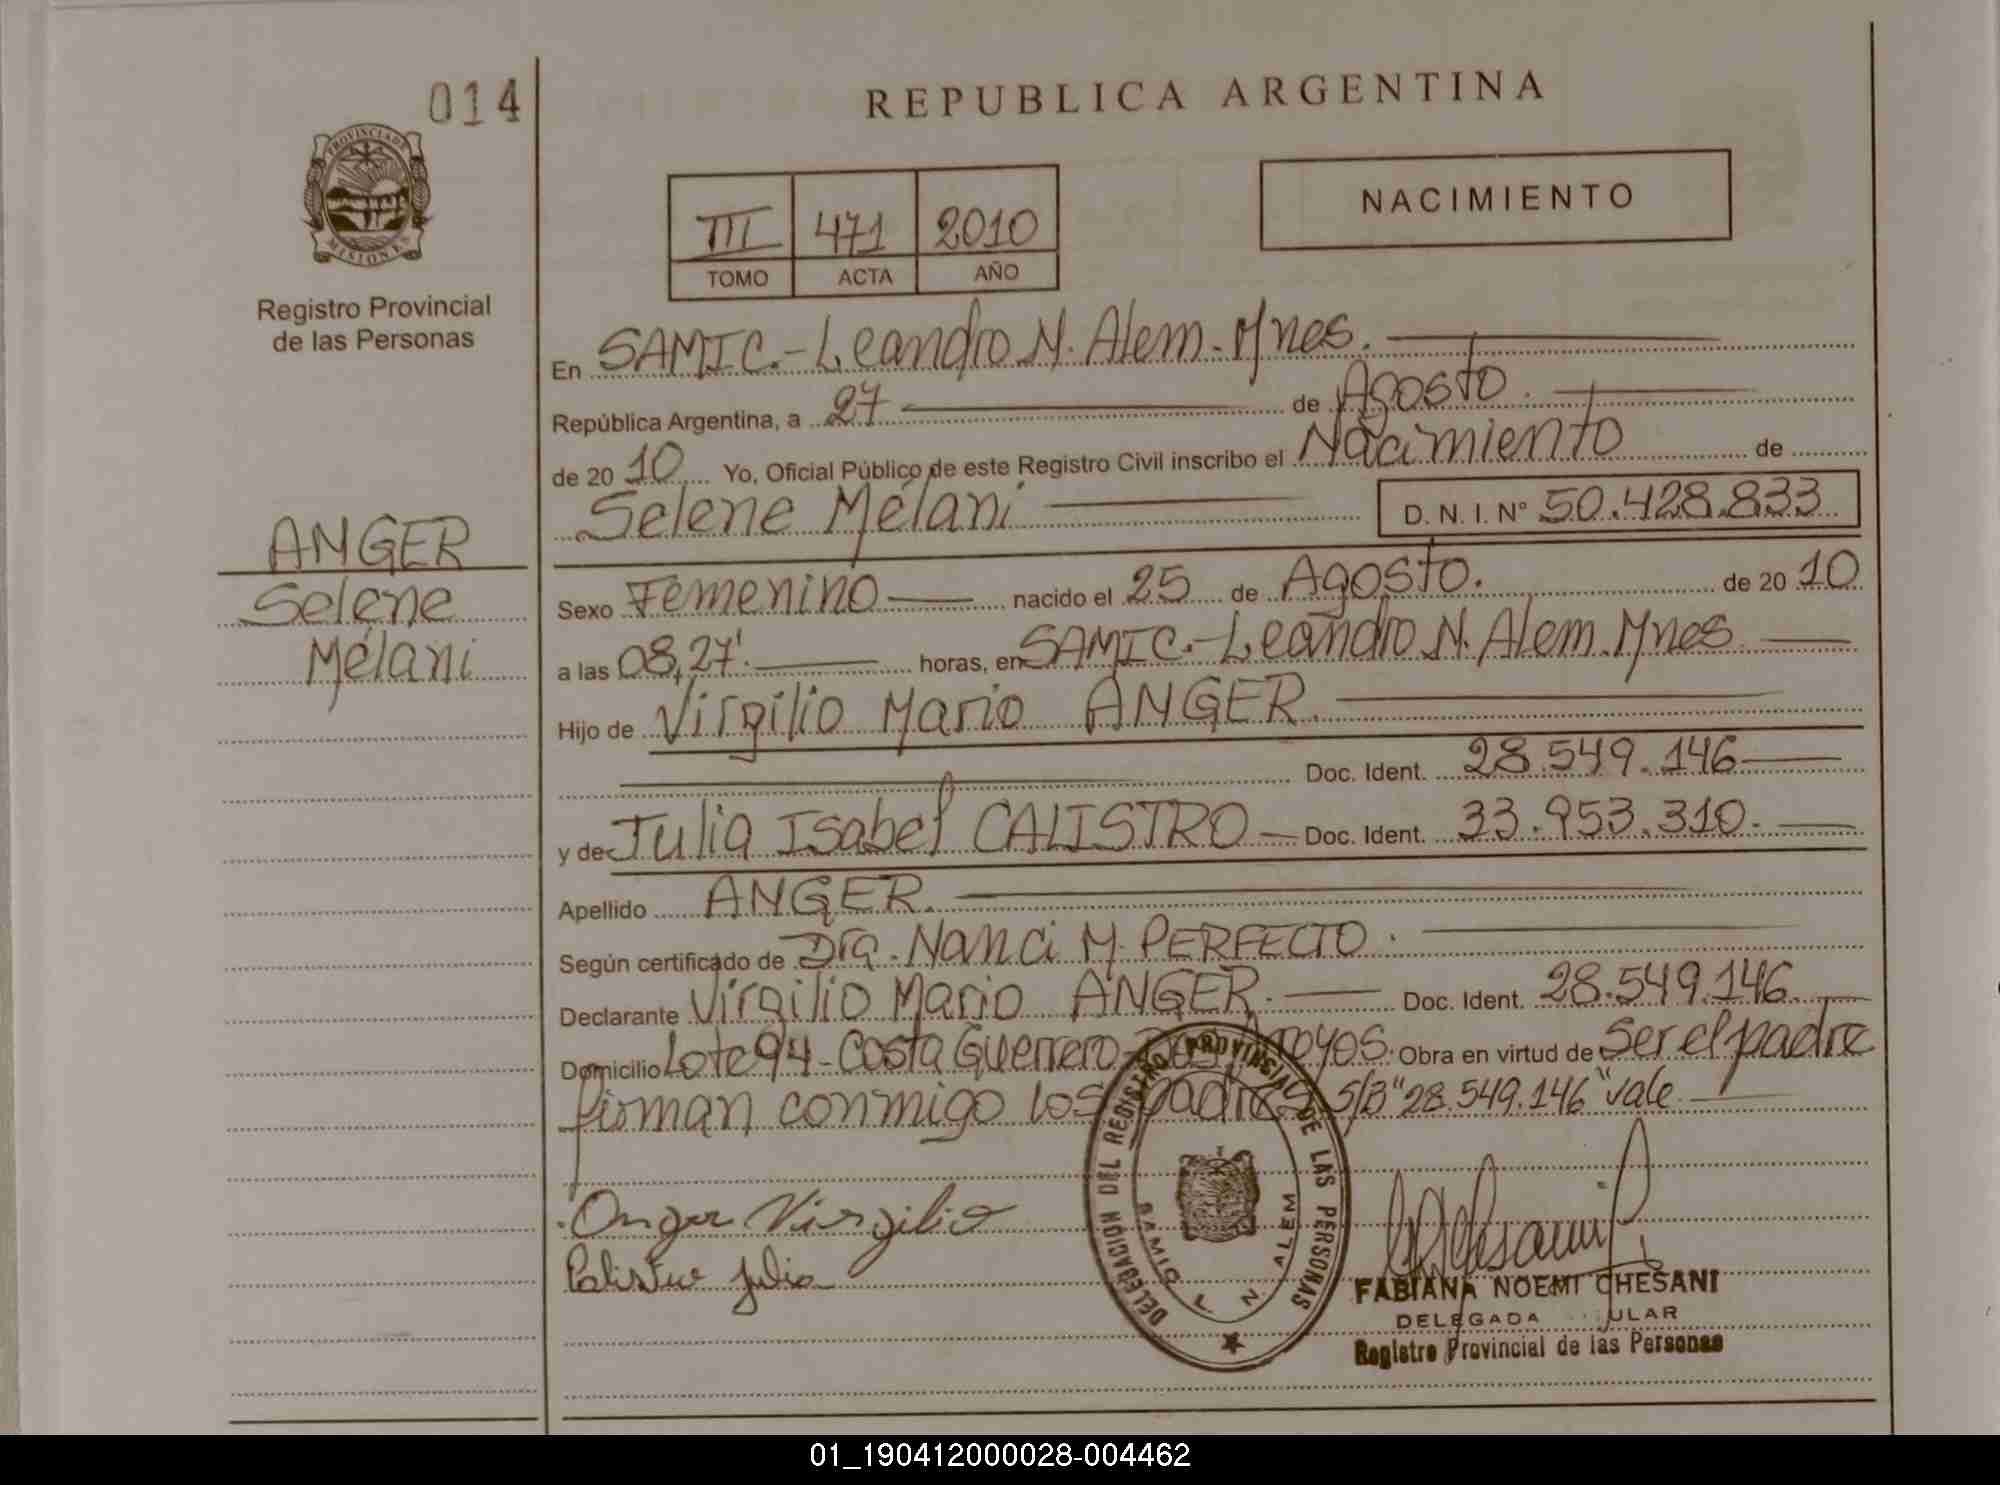 014
REPUBLICA ARGENTINA
PROVINCIA DE MISIONES
Registro Provincial
de las Personas
III 471 2010
TOMO ACTA AÑO
NACIMIENTO
En SAMIC.-Leandro N. Alem. Mnes.
República Argentina, a 27 de Agosto.
de 2010 Yo, Oficial Público de este Registro Civil inscribo el Nacimiento de
Selene Mélani D. N. I. N° 50.428.833
ANGER
Selene
Mélani
Sexo Femenino nacido el 25 de Agosto. de 2010
a las 08,27' horas, en SAMIC.-Leandro N. Alem. Mnes
Hijo de Virgilio Mario ANGER.
Doc. Ident. 28.549.146
y de Julia Isabel CALISTRO Doc. Ident. 33.953.310.
Apellido ANGER.
Según certificado de Dra. Nanci M. PERFECTO.
Declarante Virgilio Mario ANGER. Doc. Ident. 28.549.146.
Domicilio Lote 94-Costa Guerrero- Obra en virtud de Ser el padre
firman conmigo los padres S/B "28.549.146" vale
Anger Virgilio
Calistro Julia
DELEGACIÓN DEL REGISTRO PROVINCIAL DE LAS PERSONAS
SAMIC L. N. ALEM
FABIANA NOEMI CHESANI
DELEGADA
Registro Provincial de las Personas
01_190412000028-004462